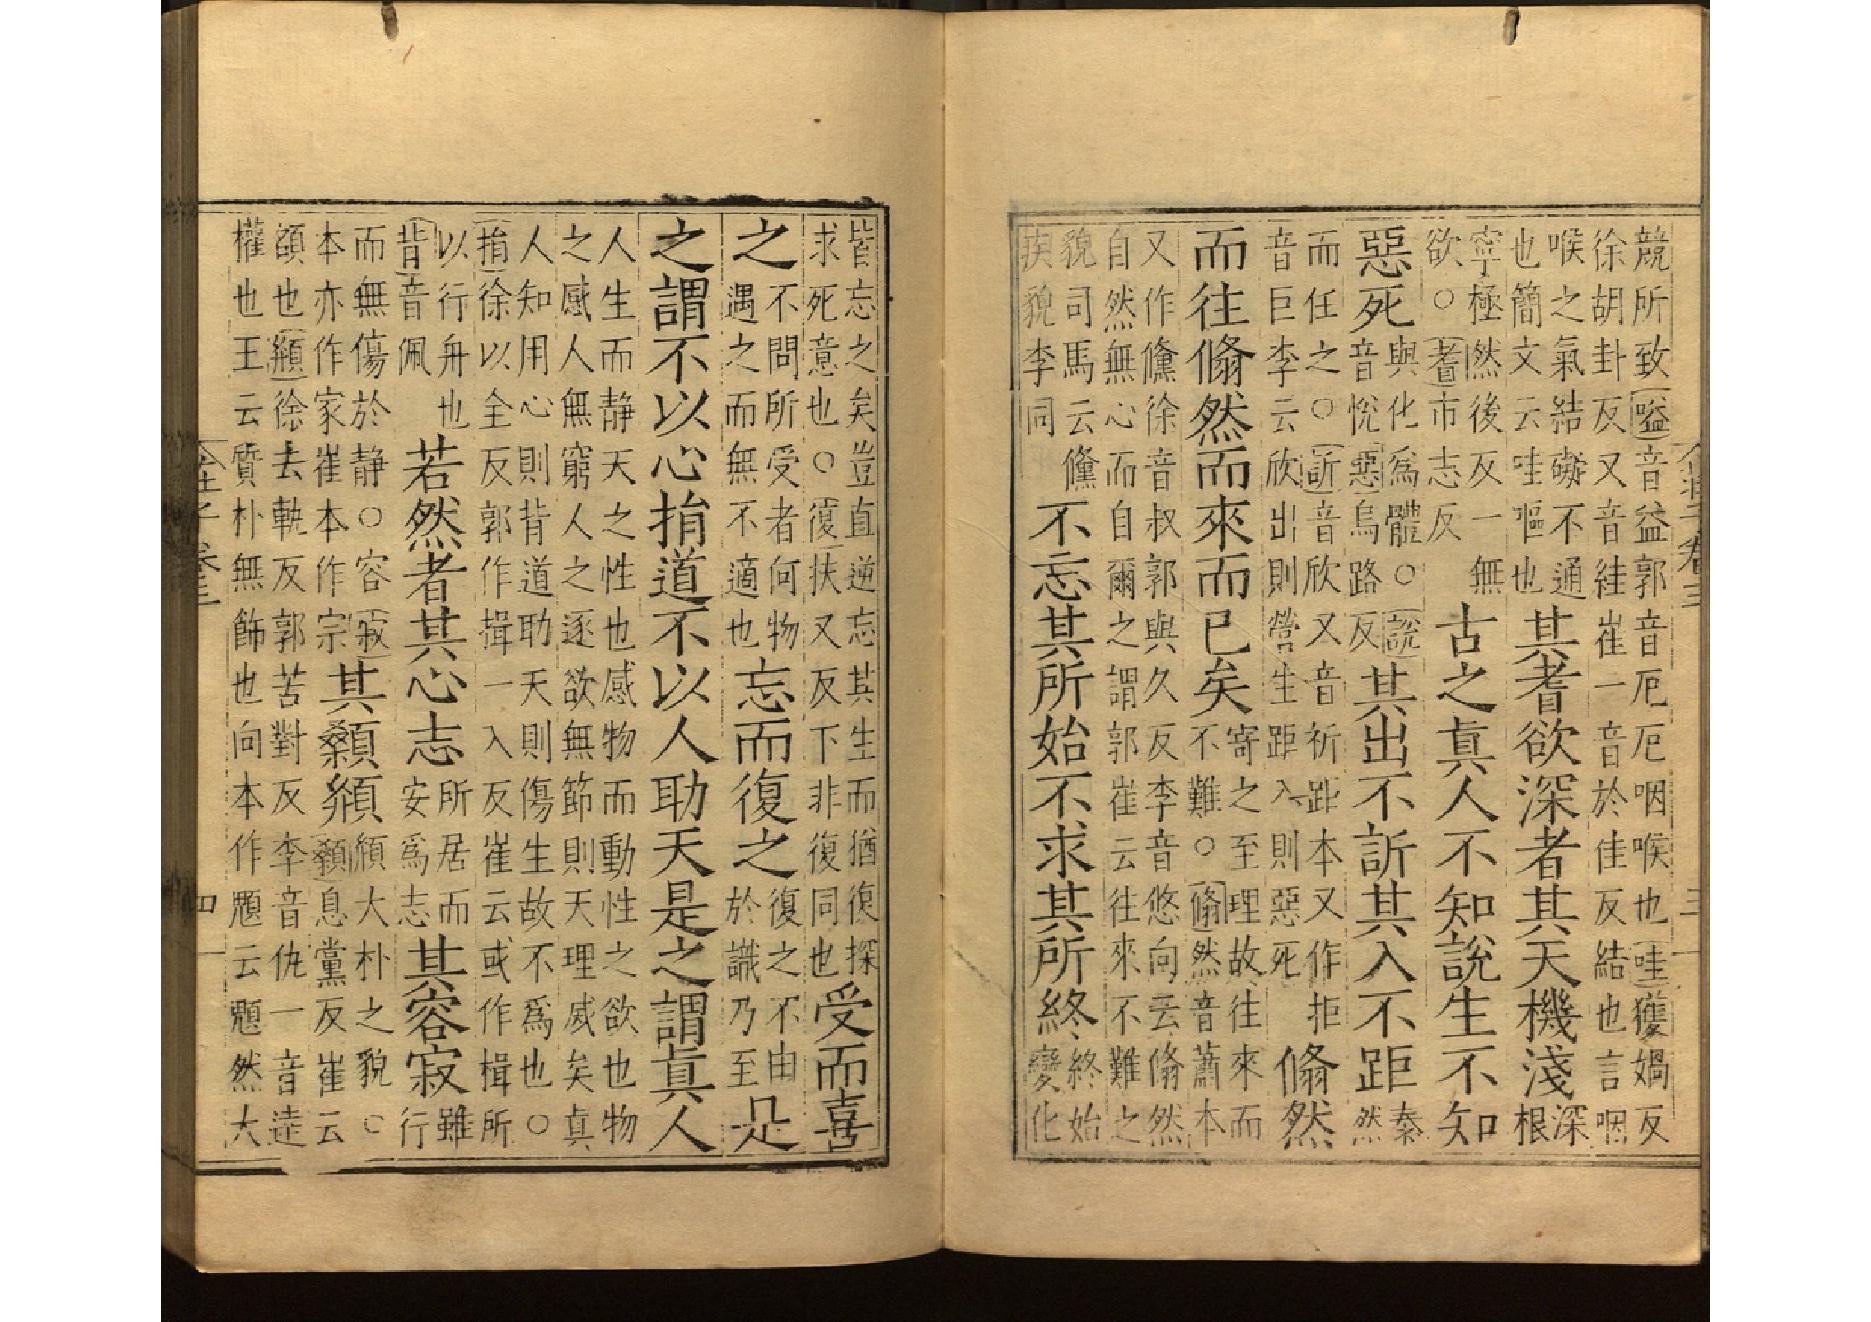 競所致嗌音益郭音厄厄咽喉也哇獲媧反
徐胡卦反又音絓崔一音於佳反結也言咽
喉之氣結礙不通也簡文云哇嘔也其耆欲深者其天機淺深根
寧極然後反一無欲○耆市志反古之眞人不知說生不知
惡死與化爲體○說音悅惡烏路反其出不訢其入不距泰然
而任之○訢音欣又音祈距本又作拒音巨李云欣出則營生距入則惡死翛然
而往翛然而來而已矣寄之至理故往來而不難○翛然音蕭本
又作儵徐音叔郭與久反李音悠向云翛然
自然無心而自爾之謂郭崔云往來不難之
貌司馬云儵疾貌李同不忘其所始不求其所終終始變化
皆忘之矣豈直逆忘其生而猶復探求死意也○復扶又反下非復同也受而喜
之不問所受者何物遇之而無不適也忘而復之復之不由於識乃至是
之謂不以心捐道不以人助天是之謂眞人
人生而静天之性也感物而動性之欲也物
之感人無窮人之逐欲無節則天理滅矣真
人知用心則背道助天則傷生故不爲也○
捐徐以全反郭作揖一入反崔云或作楫所
以行舟也背音佩若然者其心志所居而安爲志其容寂雖行
而無傷於静○容寂本亦作家崔本作宗其顙頯頯大朴之貌○顙息黨反崔云
頟也頯徐去軌反郭苦對反李音仇一音逵
權也王云質朴無飾也向本作題云題然大